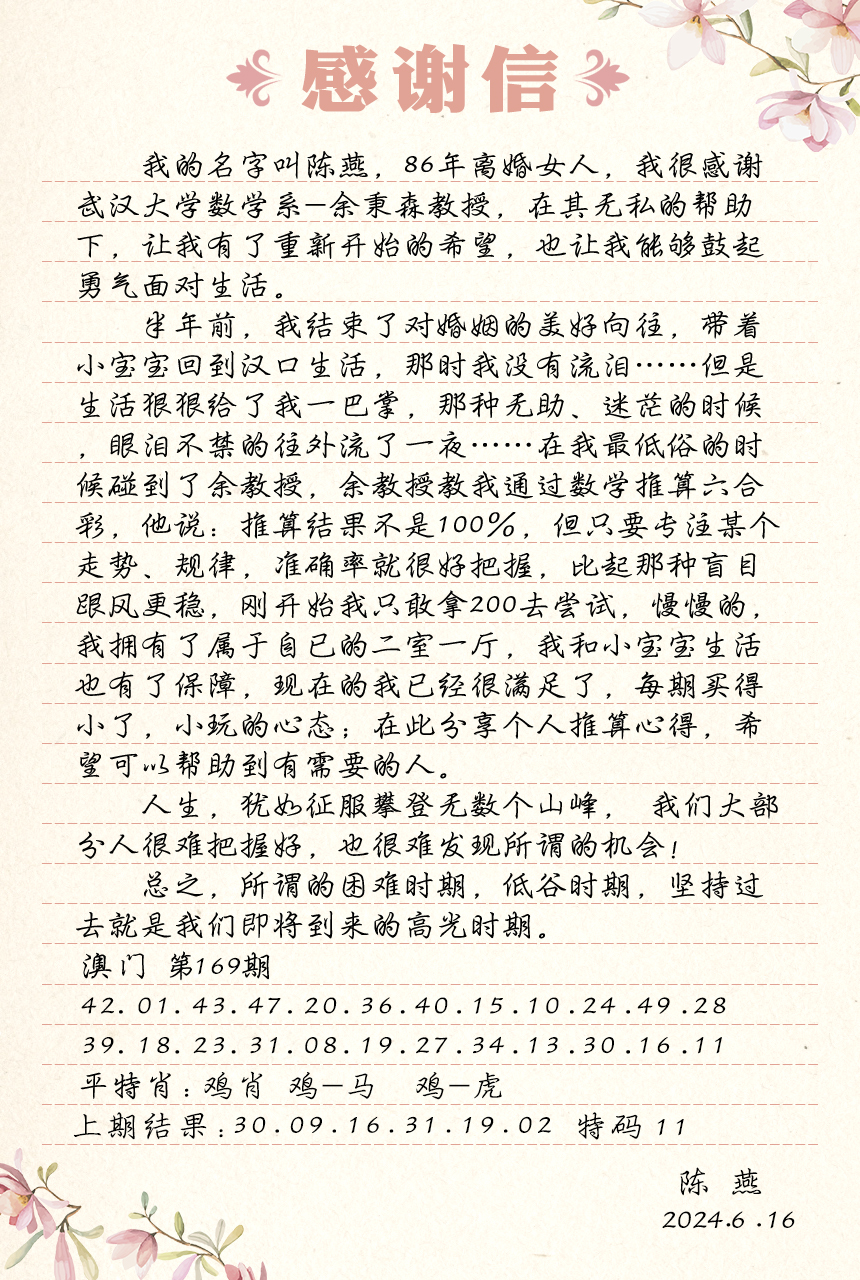 感谢信
我的名字叫陈燕，86年离婚女人，我很感谢
武汉大学数学系-余秉森教授，在其无私的帮助
下，让我有了重新开始的希望，也让我能够鼓起
勇气面对生活。
半年前，我结束了对婚姻的美好向往，带着
小宝宝回到汉口生活，那时我没有流泪……但是
生活狠狠给了我一巴掌，那种无助、迷茫的时候
，眼泪不禁的往外流了一夜……在我最低俗的时
候碰到了余教授，余教授教我通过数学推算六合
彩，他说：推算结果不是100%，但只要专注某个
走势、规律，准确率就很好把握，比起那种盲目
跟风更稳，刚开始我只敢拿200去尝试，慢慢的，
我拥有了属于自己的二室一厅，我和小宝宝生活
也有了保障，现在的我已经很满足了，每期买得
小了，小玩的心态；在此分享个人推算心得，希
望可以帮助到有需要的人。
人生，犹如征服攀登无数个山峰， 我们大部
分人很难把握好，也很难发现所谓的机会！
总之，所谓的困难时期，低谷时期，坚持过
去就是我们即将到来的高光时期。
澳门 第169期
42.01.43.47.20.36.40.15.10.24.49.28
39.18.23.31.08.19.27.34.13.30.16.11
平特肖：鸡肖 鸡-马 鸡-虎
上期结果：30.09.16.31.19.02 特码 11
陈 燕
2024.6.16